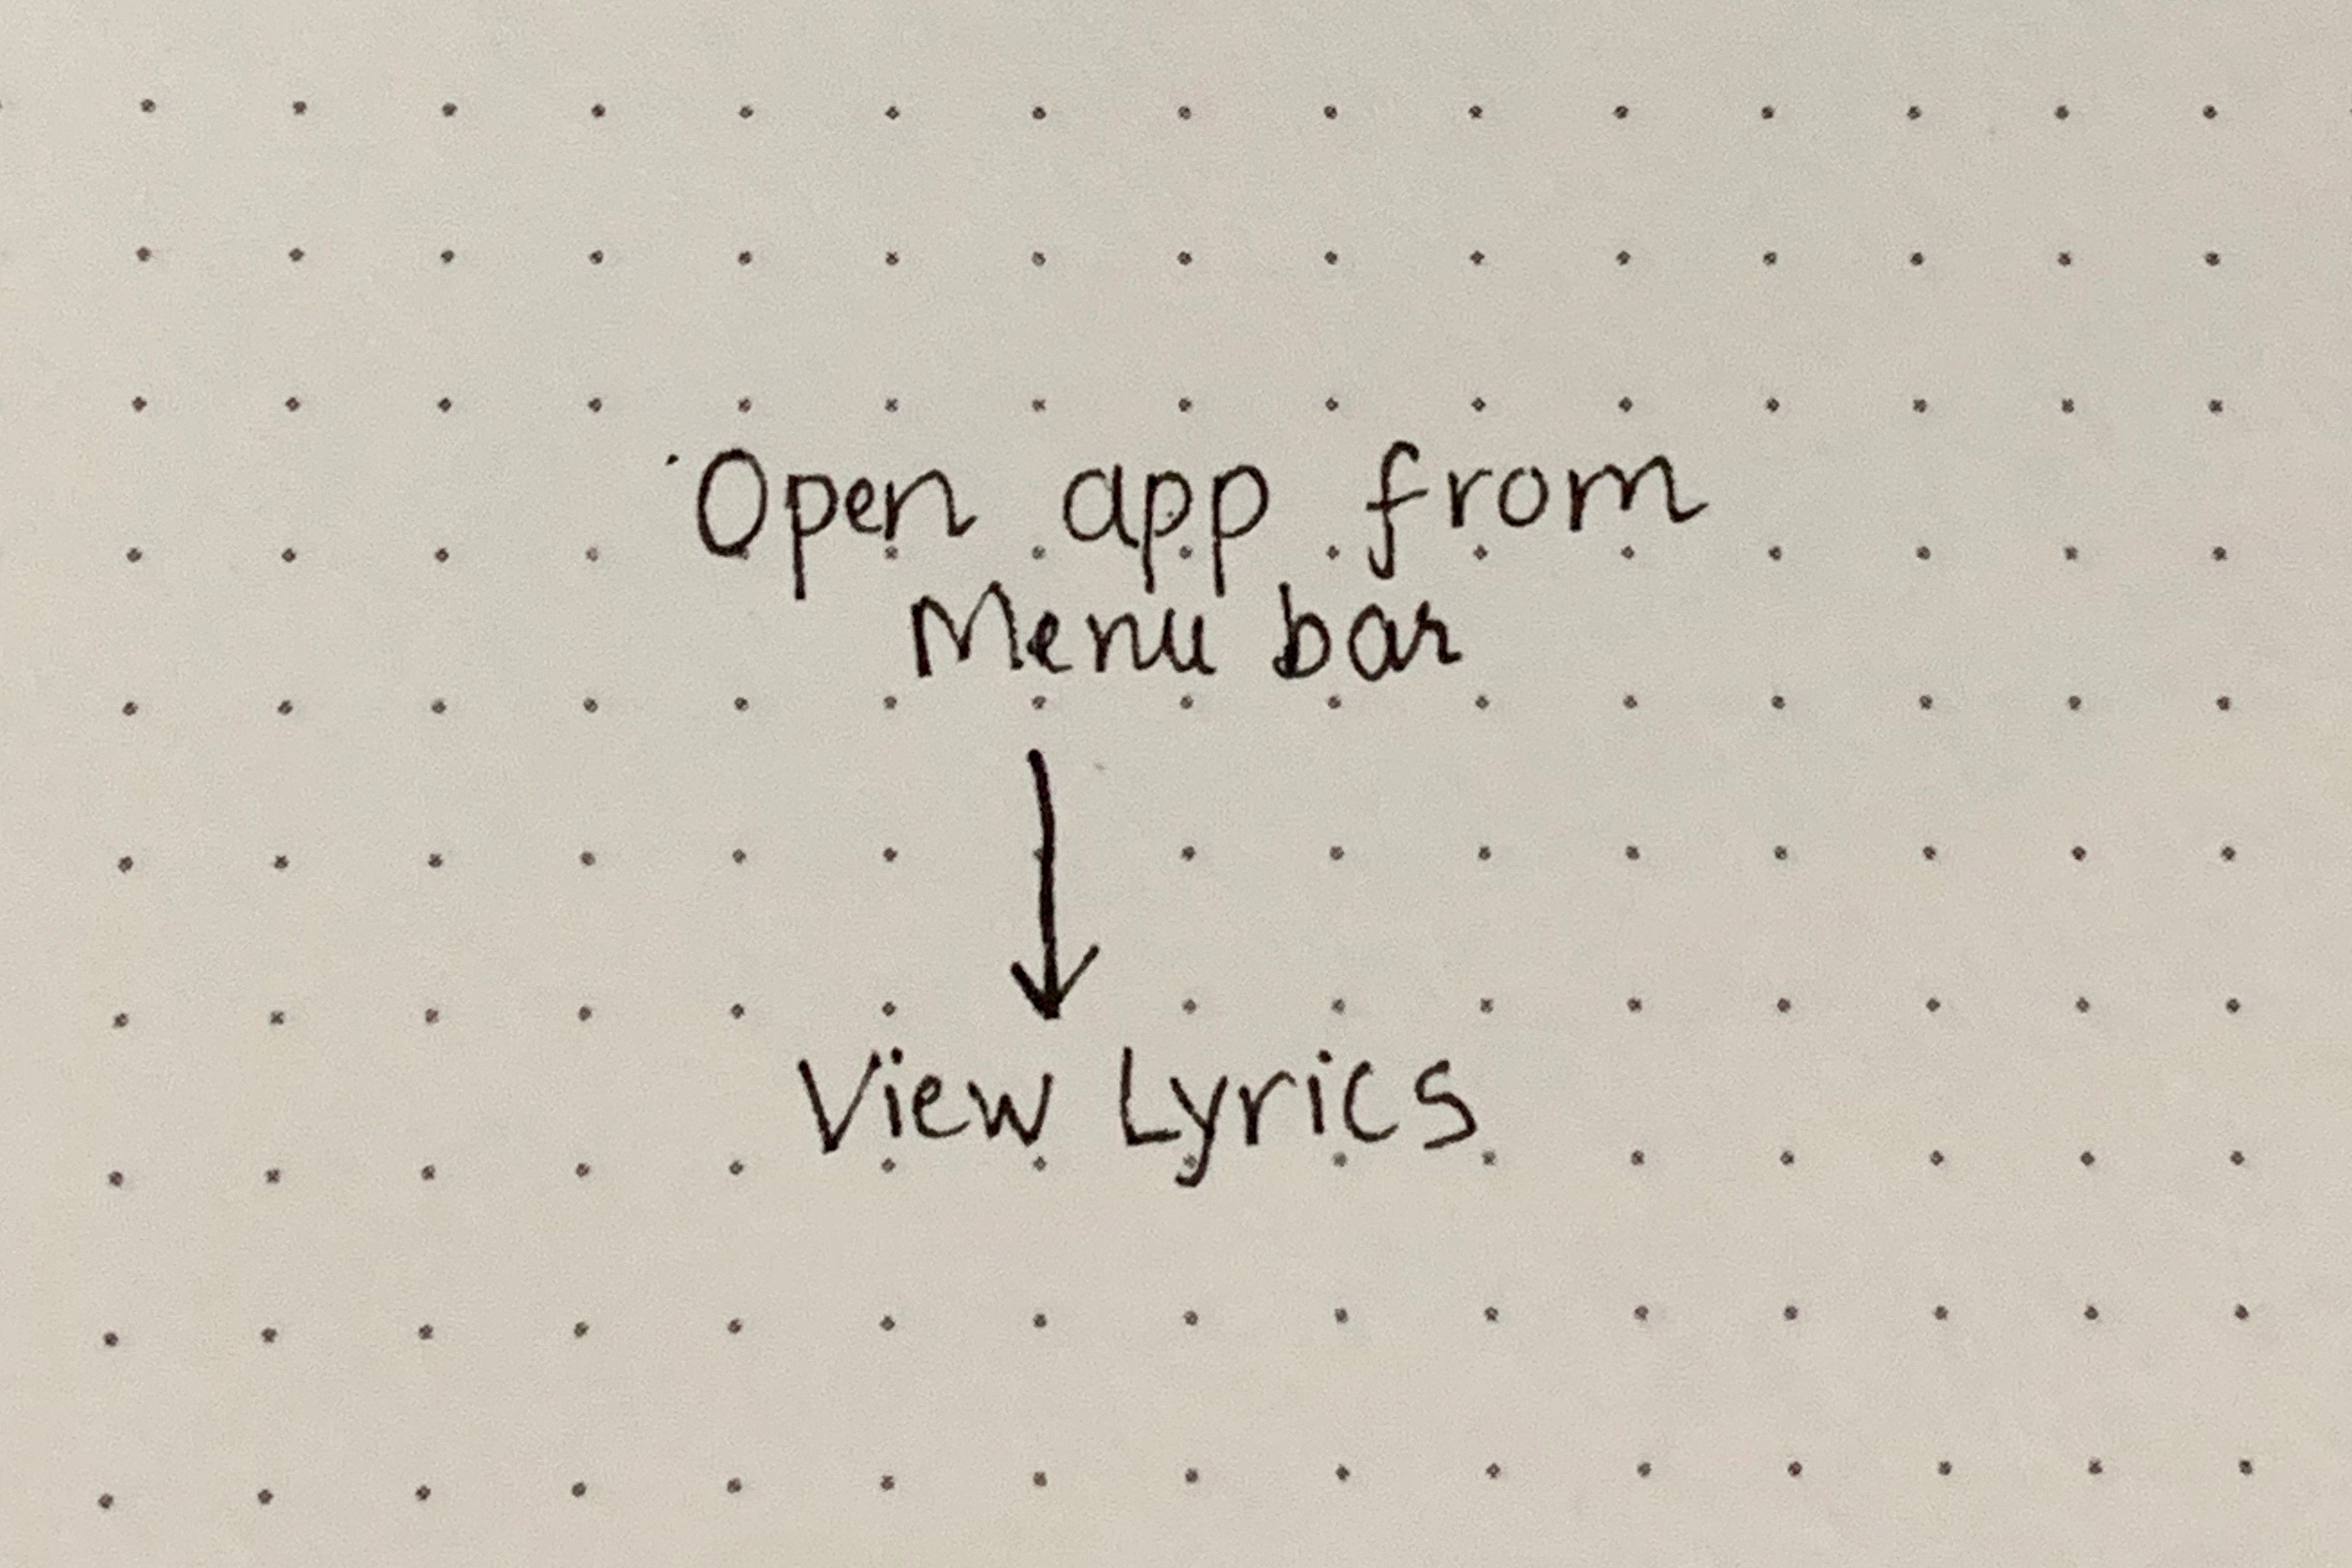 Open app from
Menu bar
View Lyrics